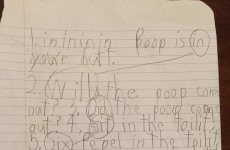 1. intninin Poop is in
your butt.
2. Will the poop come
out? 3. And the poop come
out? 4. in the toilit,
5. Six pepel in the toilit,